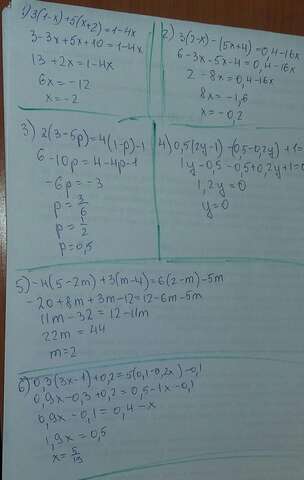 1) 3(1-x)+5(x+2)=1-4x
3-3x+5x+10=1-4x
13+2x=1-4x
6x=-12
x=-2
2) 3(2-x)-(5x+4)=0,4-16x
6-3x-5x-4=0,4-16x
2-8x=0,4-16x
8x=-1,6
x=-0,2
3) 2(3-5p)=4(1-p)-1
6-10p=4-4p-1
-6p=-3
p=3/6
p=1/2
p=0,5
4) 0,5(2y-1)-(0,5-0,2y)+1=
1y-0,5-0,5+0,2y+1=0
1,2y=0
y=0
5) -4(5-2m)+3(m-4)=6(2-m)-5m
-20+8m+3m-12=12-6m-5m
11m-32=12-11m
22m=44
m=2
6) 0,3(3x-1)+0,2=5(0,1-0,2x)-0,1
0,9x-0,3+0,2=0,5-1x-0,1
0,9x-0,1=0,4-x
1,9x=0,5
x=5/19